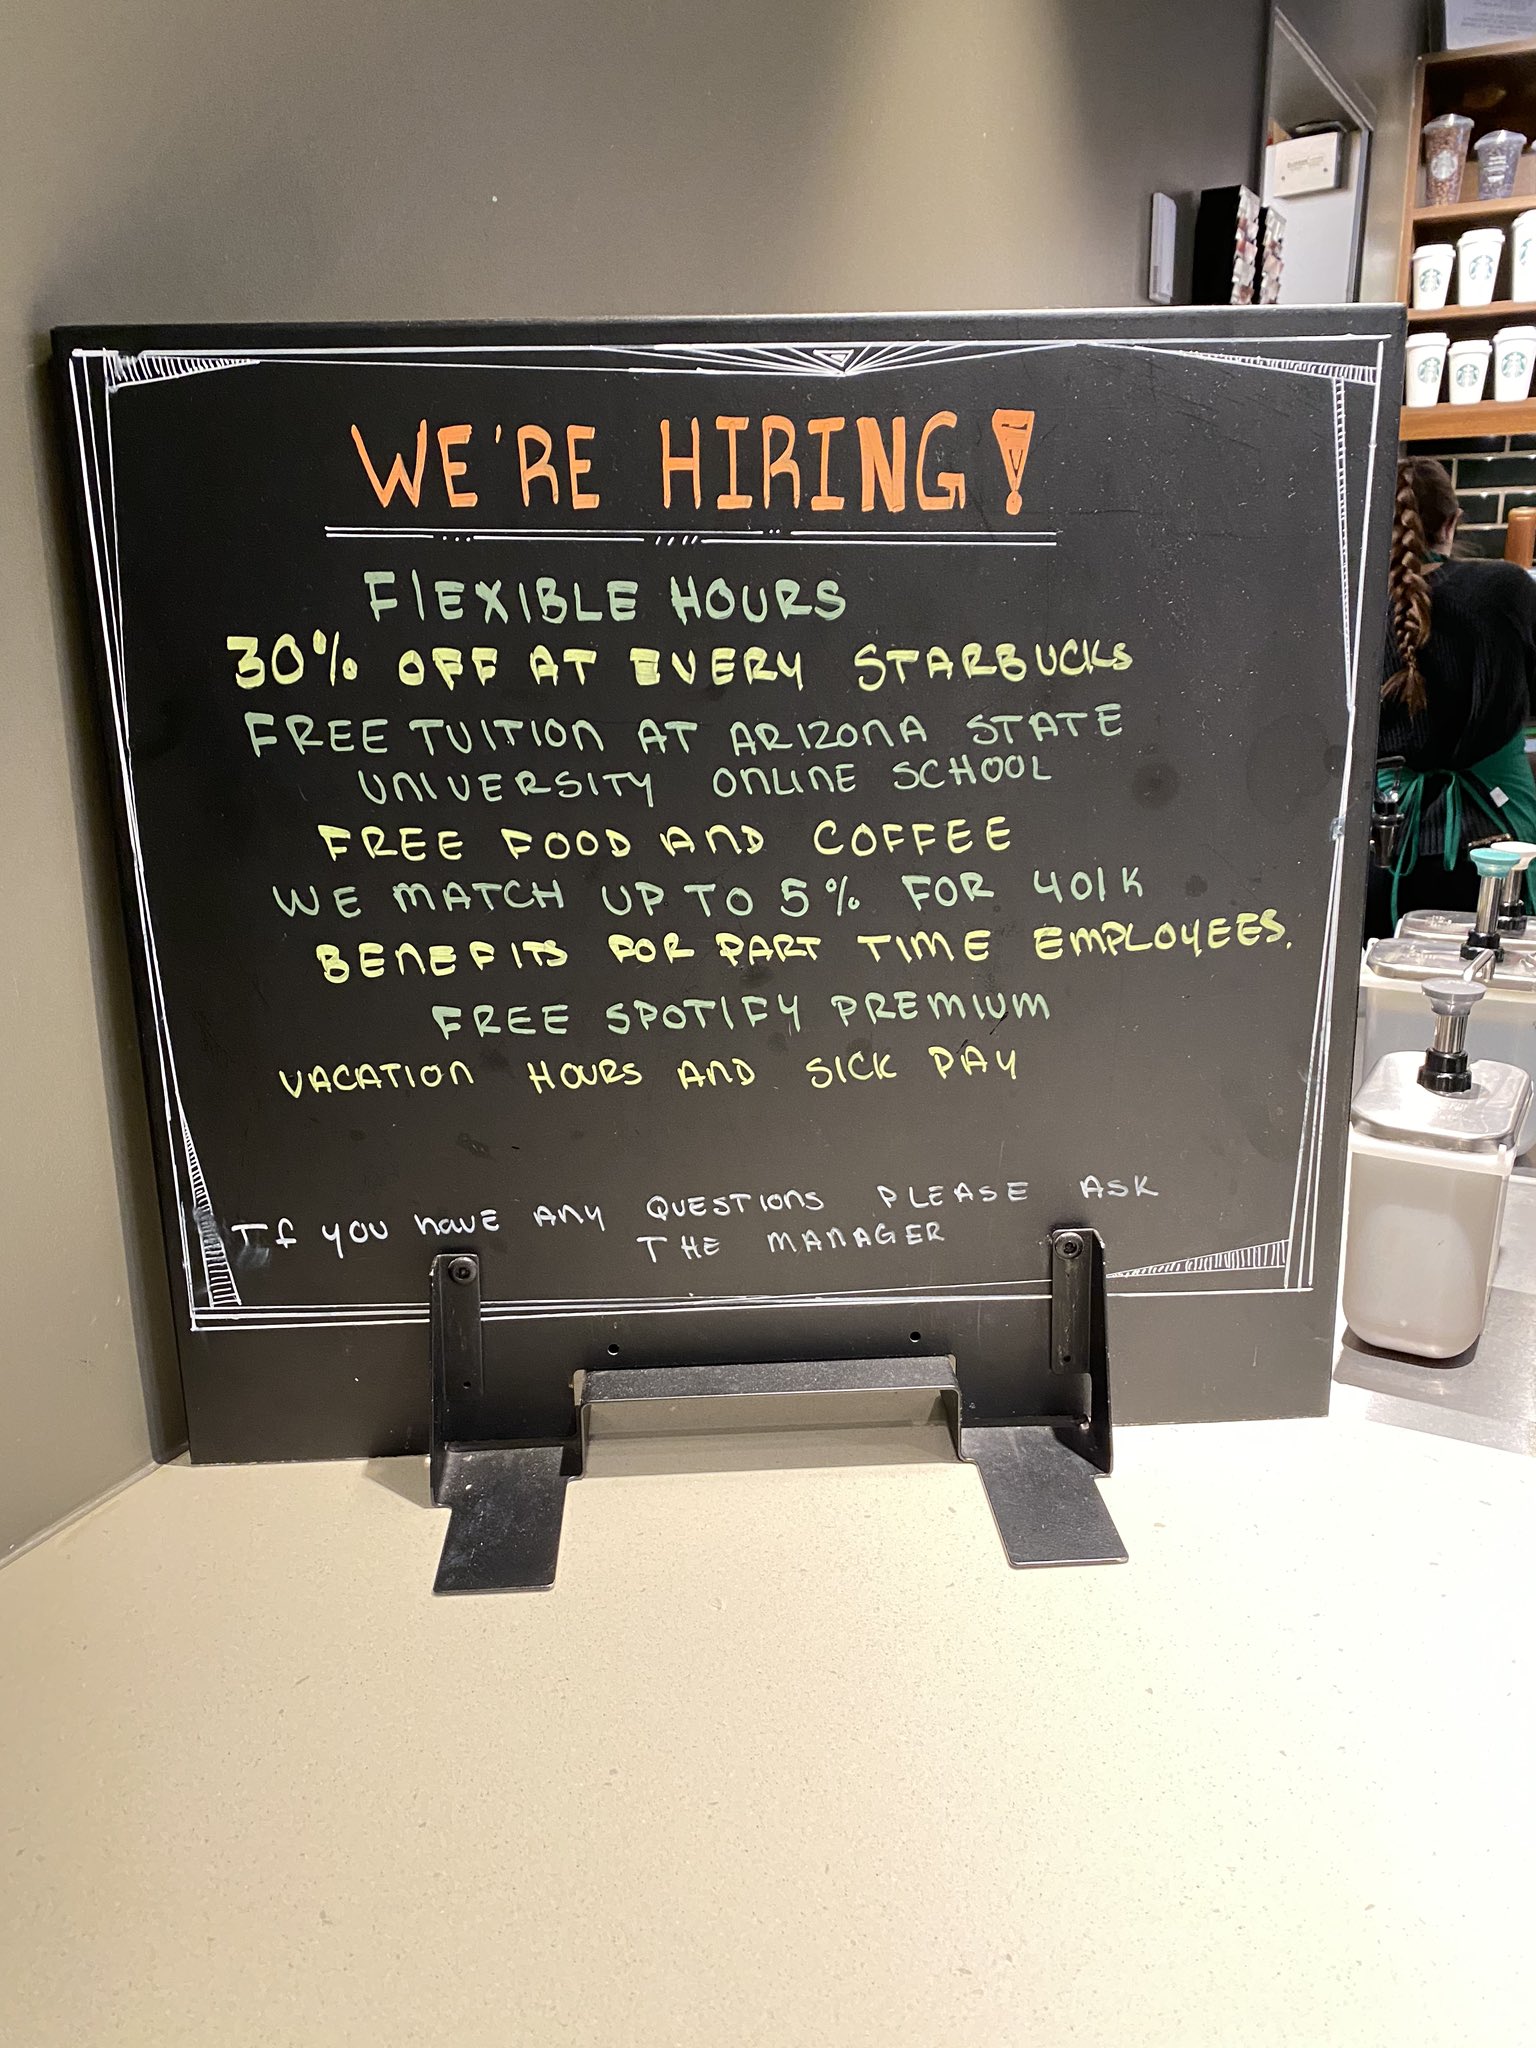 WE'RE HIRING!
FlEXIBLE HOURS
30% OFF AT EVERY STARBUCKS
FREE TUITION AT ARIZONA STATE
UNIVERSITY ONLINE SCHOOL
FREE FOOD AND COFFEE
WE MATCH UP TO 5% FOR 401K
BENEFITS FOR PART TIME EMPLOYEES.
FREE SPOTIFY PREMIUM
VACATION HOURS AND SICK PAY
If you have ANY QUESTIONS PLEASE ASK
THE MANAGER